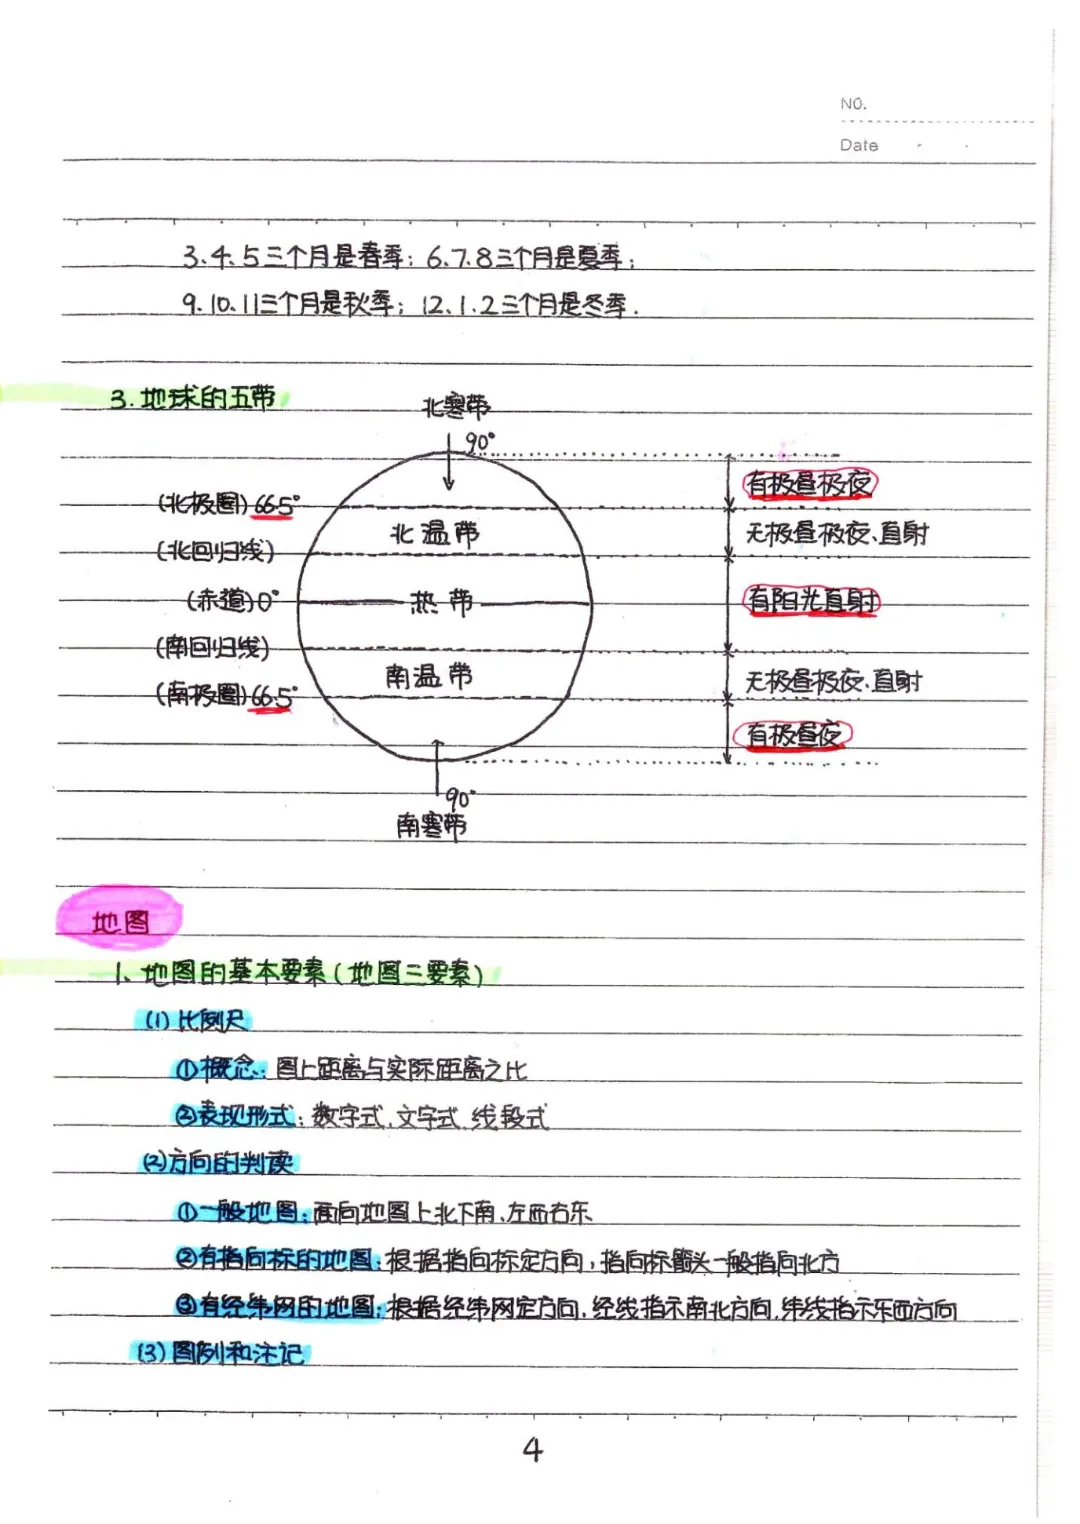 NO.
Date
3.4.5三个月是春季；6.7.8三个月是夏季；
9.10.11三个月是秋季；12.1.2三个月是冬季.
3.地球的五带
北寒带
90°
(北极圈)66.5°
北温带
(北回归线)
(赤道)0°
热带
(南回归线)
南温带
(南极圈)66.5°
90°
南寒带
有极昼极夜
无极昼极夜、直射
有阳光直射
无极昼极夜、直射
有极昼夜
地图
1、地图的基本要素(地图三要素)
(1)比例尺
①概念：图上距离与实际距离之比
②表现形式：数字式、文字式、线段式
(2)方向的判读
①一般地图：面向地图上北下南、左西右东
②有指向标的地图：根据指向标定方向，指向标箭头一般指向北方
③有经纬网的地图：根据经纬网定方向，经线指示南北方向，纬线指示东西方向
(3)图例和注记
4